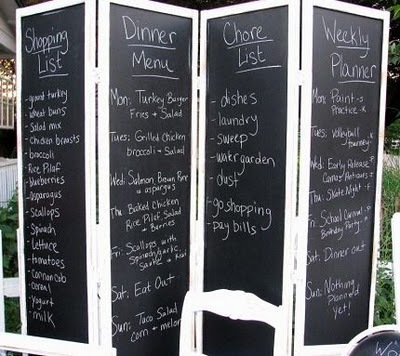 Shopping
List
- ground turkey
- wheat buns
- Salad mix
- Chicken breasts
- broccoli
- Rice Pilaf
- blueberries
- Asparagus
- Scallops
- Spinach
- Lettuce
- tomatoes
- cereal
- Yogurt
- milk
Dinner
Menu
Mon: Turkey Burger
Fries + Salad
Tues: Grilled Chicken
broccoli + Salad
Wed: Salmon Brown Rice
+ asparagus
Thu: Baked Chicken
Rice Pilaf, Salad
+ Berries
Fri: Scallops with
Spinach, garlic,
Sat: Eat Out
Sun: Taco Salad
Corn + melon
Chore
List
- dishes
- laundry
- sweep
- water garden
- dust
- go shopping
- pay bills
Weekly
Planner
Mon: Paint-s
Practice -K
Tues: Volleyball
Wed: Early Release
Thu: Skate Night
Fri: School Carnival
Birthday Party
Sat: Dinner out
Sun: Nothing
Planned
yet!